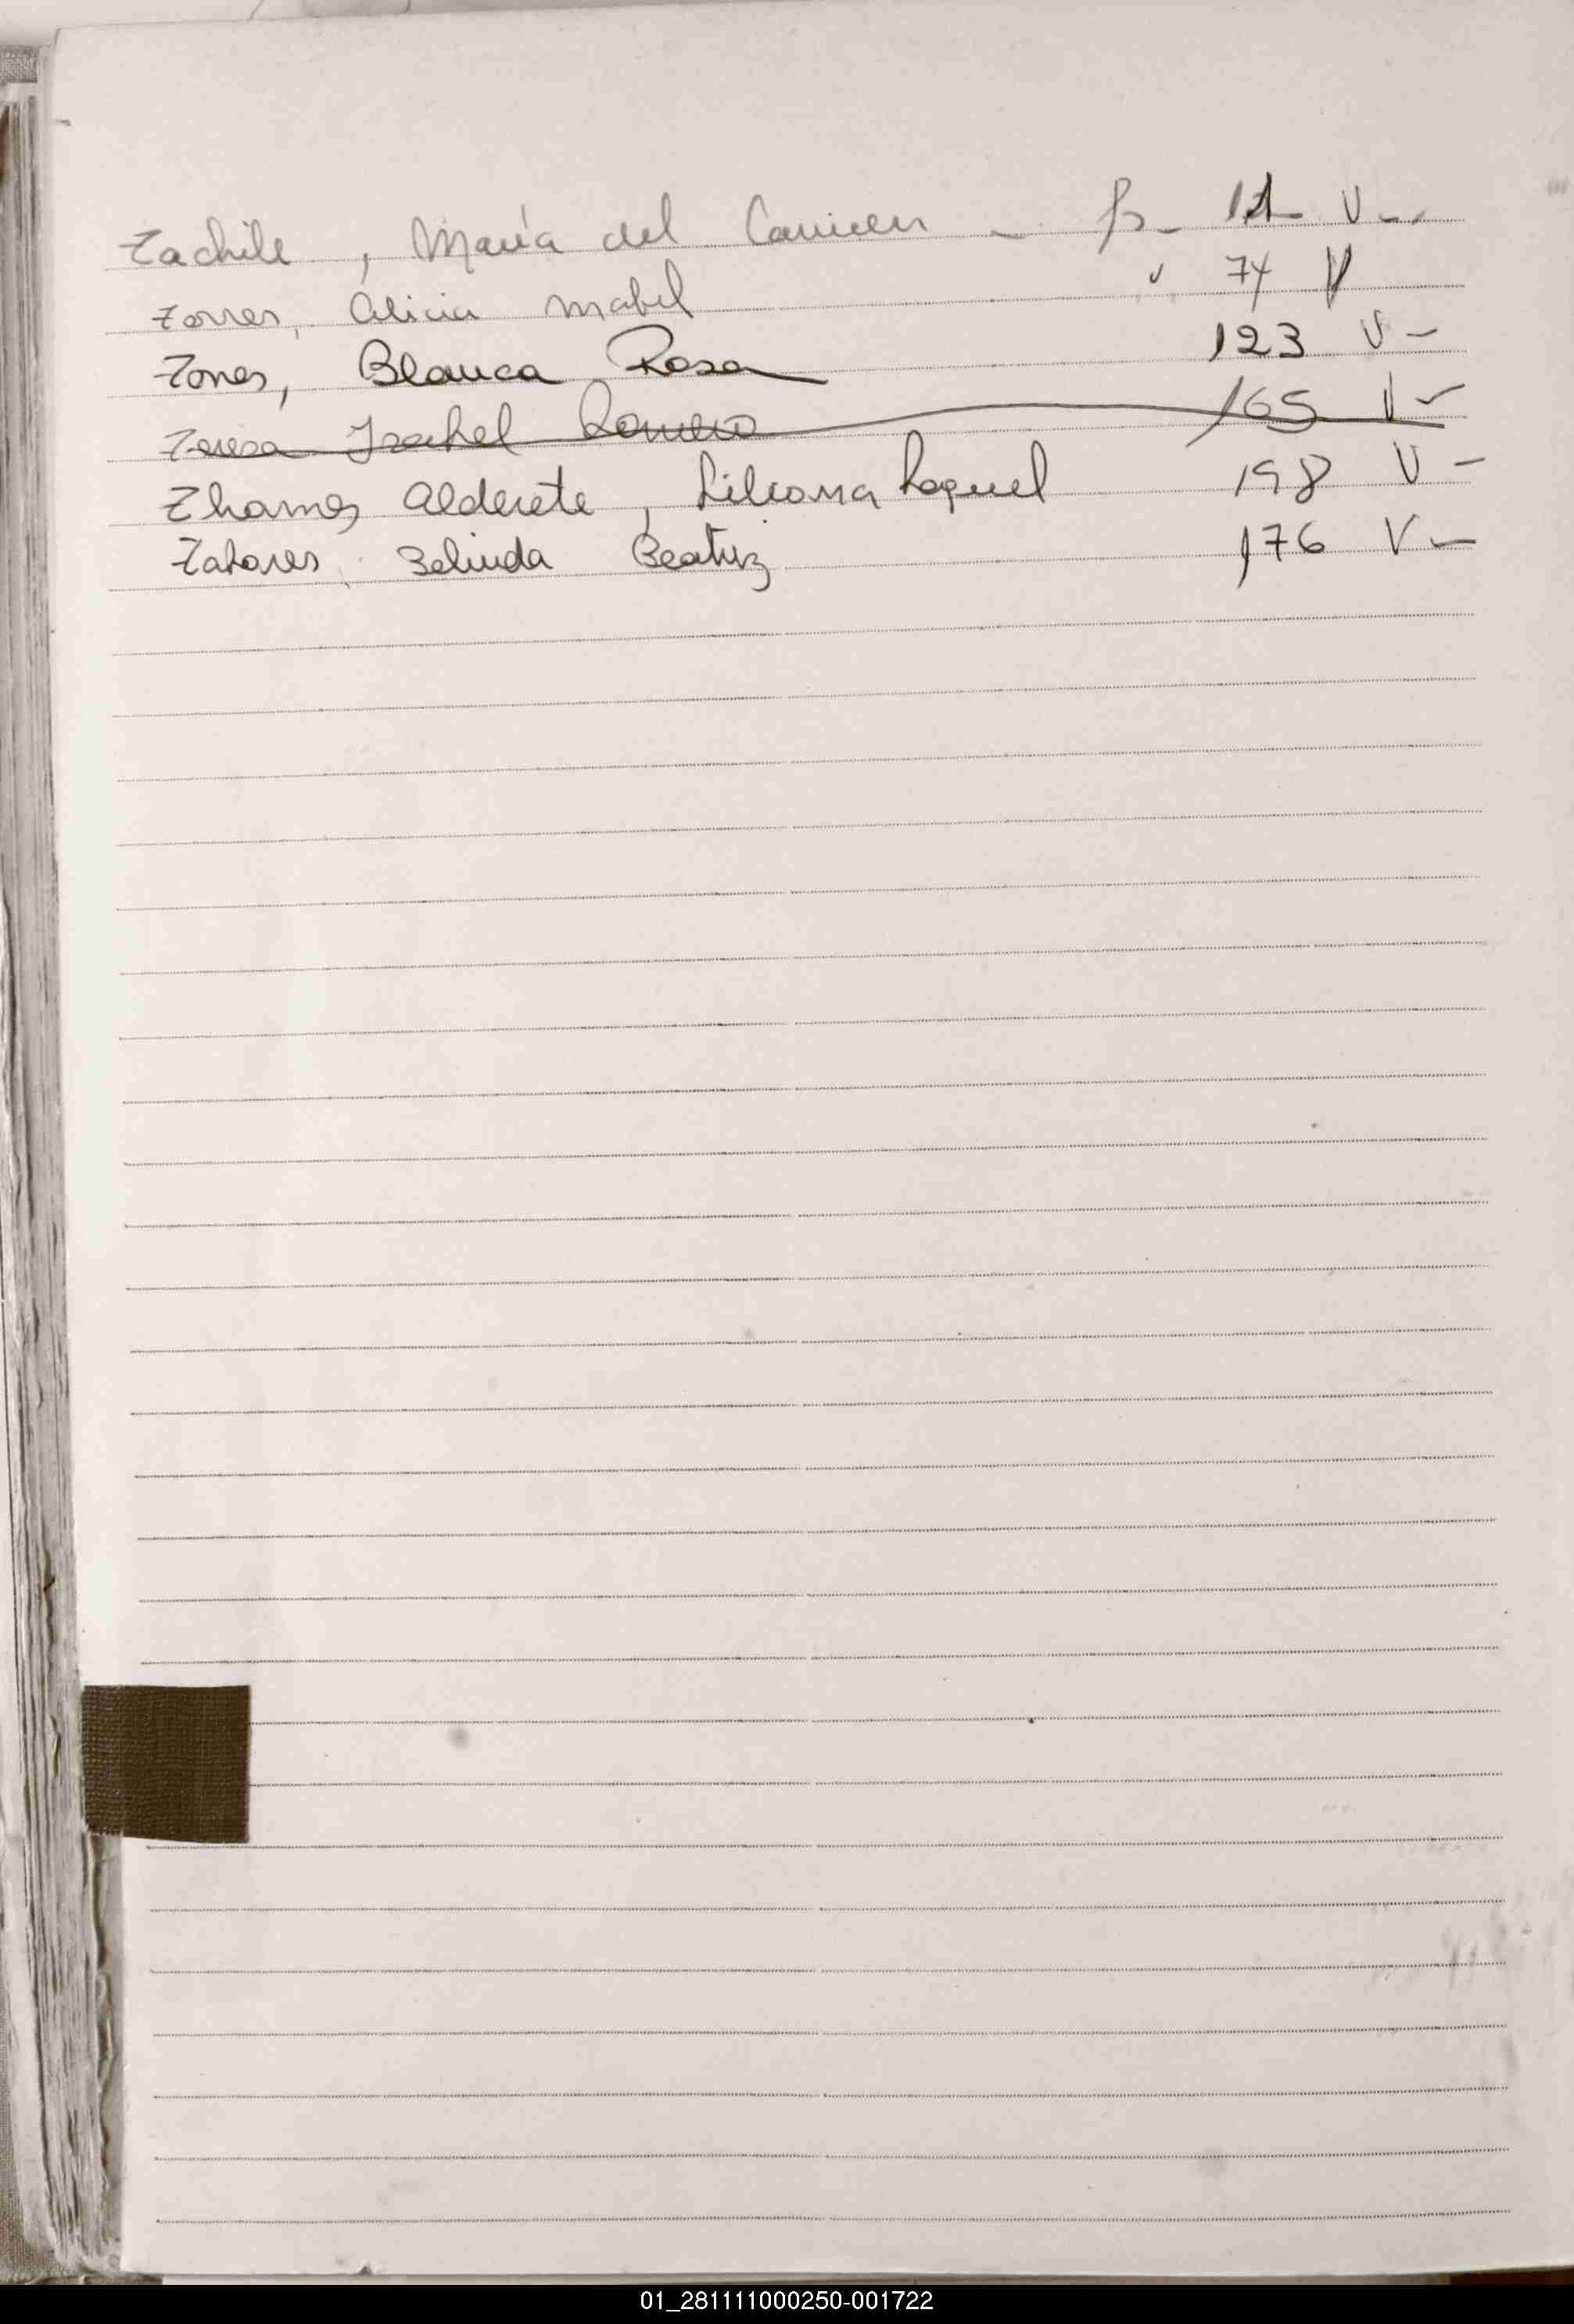 Tachile, María del Carmen - fs- 11 V--
Torres, Alicia Mabel " 74 V
Torres, Blanca Rosa 123 V-
Teresa Isabel Romero 165 V-
Thames Alderete, Liliana Raquel 198 V-
Belinda Beatriz 176 V-
01_281111000250-001722